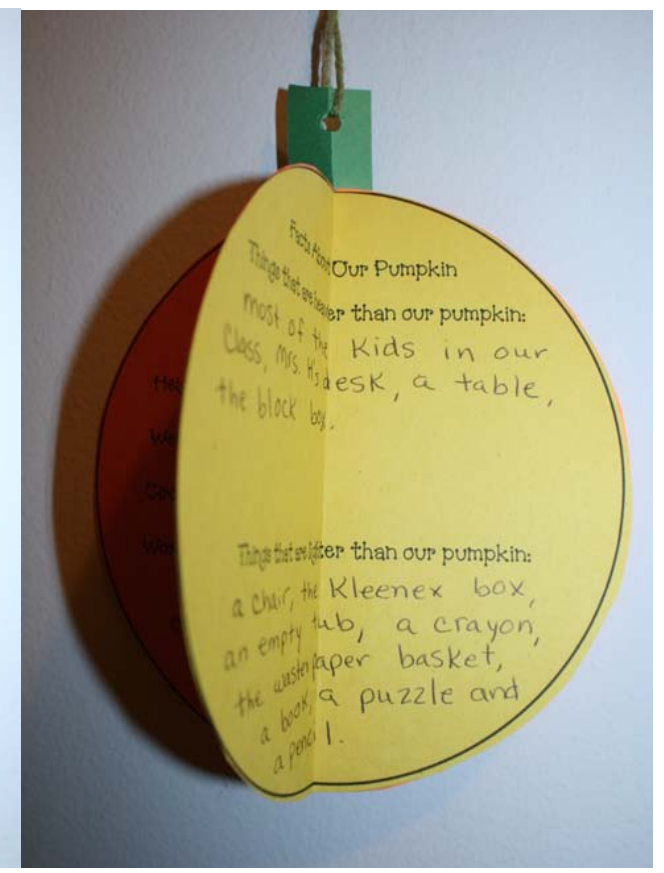 Facts About Our Pumpkin
Things that are heavier than our pumpkin:
most of the Kids in our
Class, Mrs. H's desk, a table,
the block box.
Things that are lighter than our pumpkin:
a chair, the Kleenex box,
an empty tub, a crayon,
the waste paper basket,
a book, a puzzle and
a pencil.